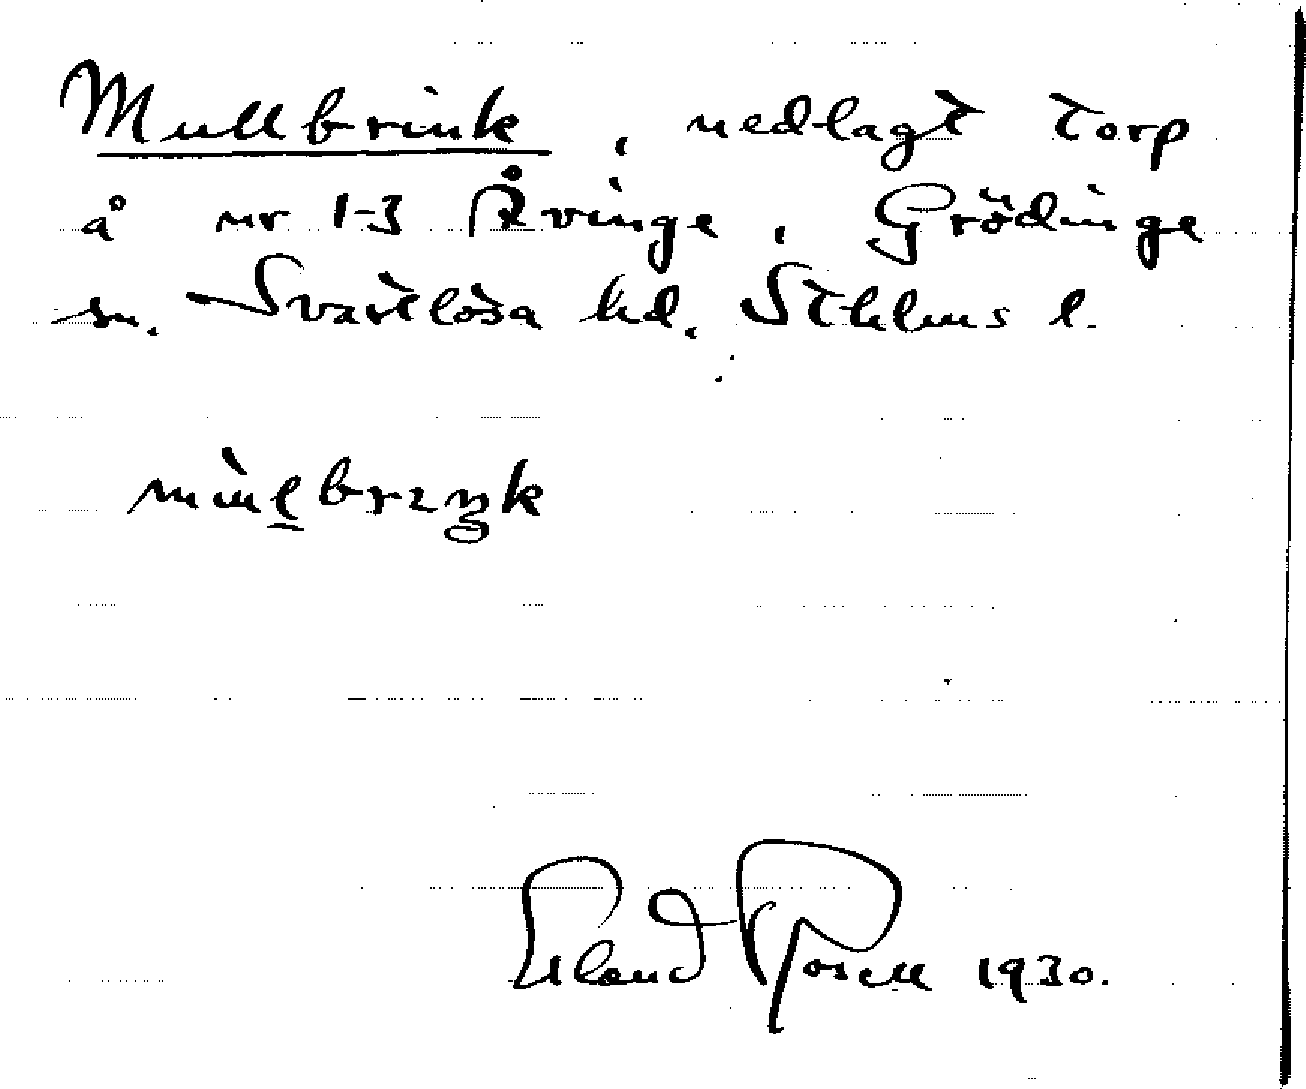 Mullbrink, nedlagt torp
å nr 1-3 Åvinge, Grödinge
sn. Svartlösa hd. Sthlms l.
Erland Rosell 1930.